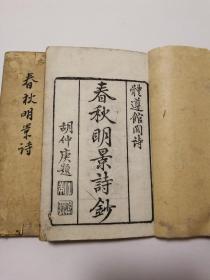 體遵館圖詩
春秋明景詩鈔
胡仲庚題
春秋明景詩